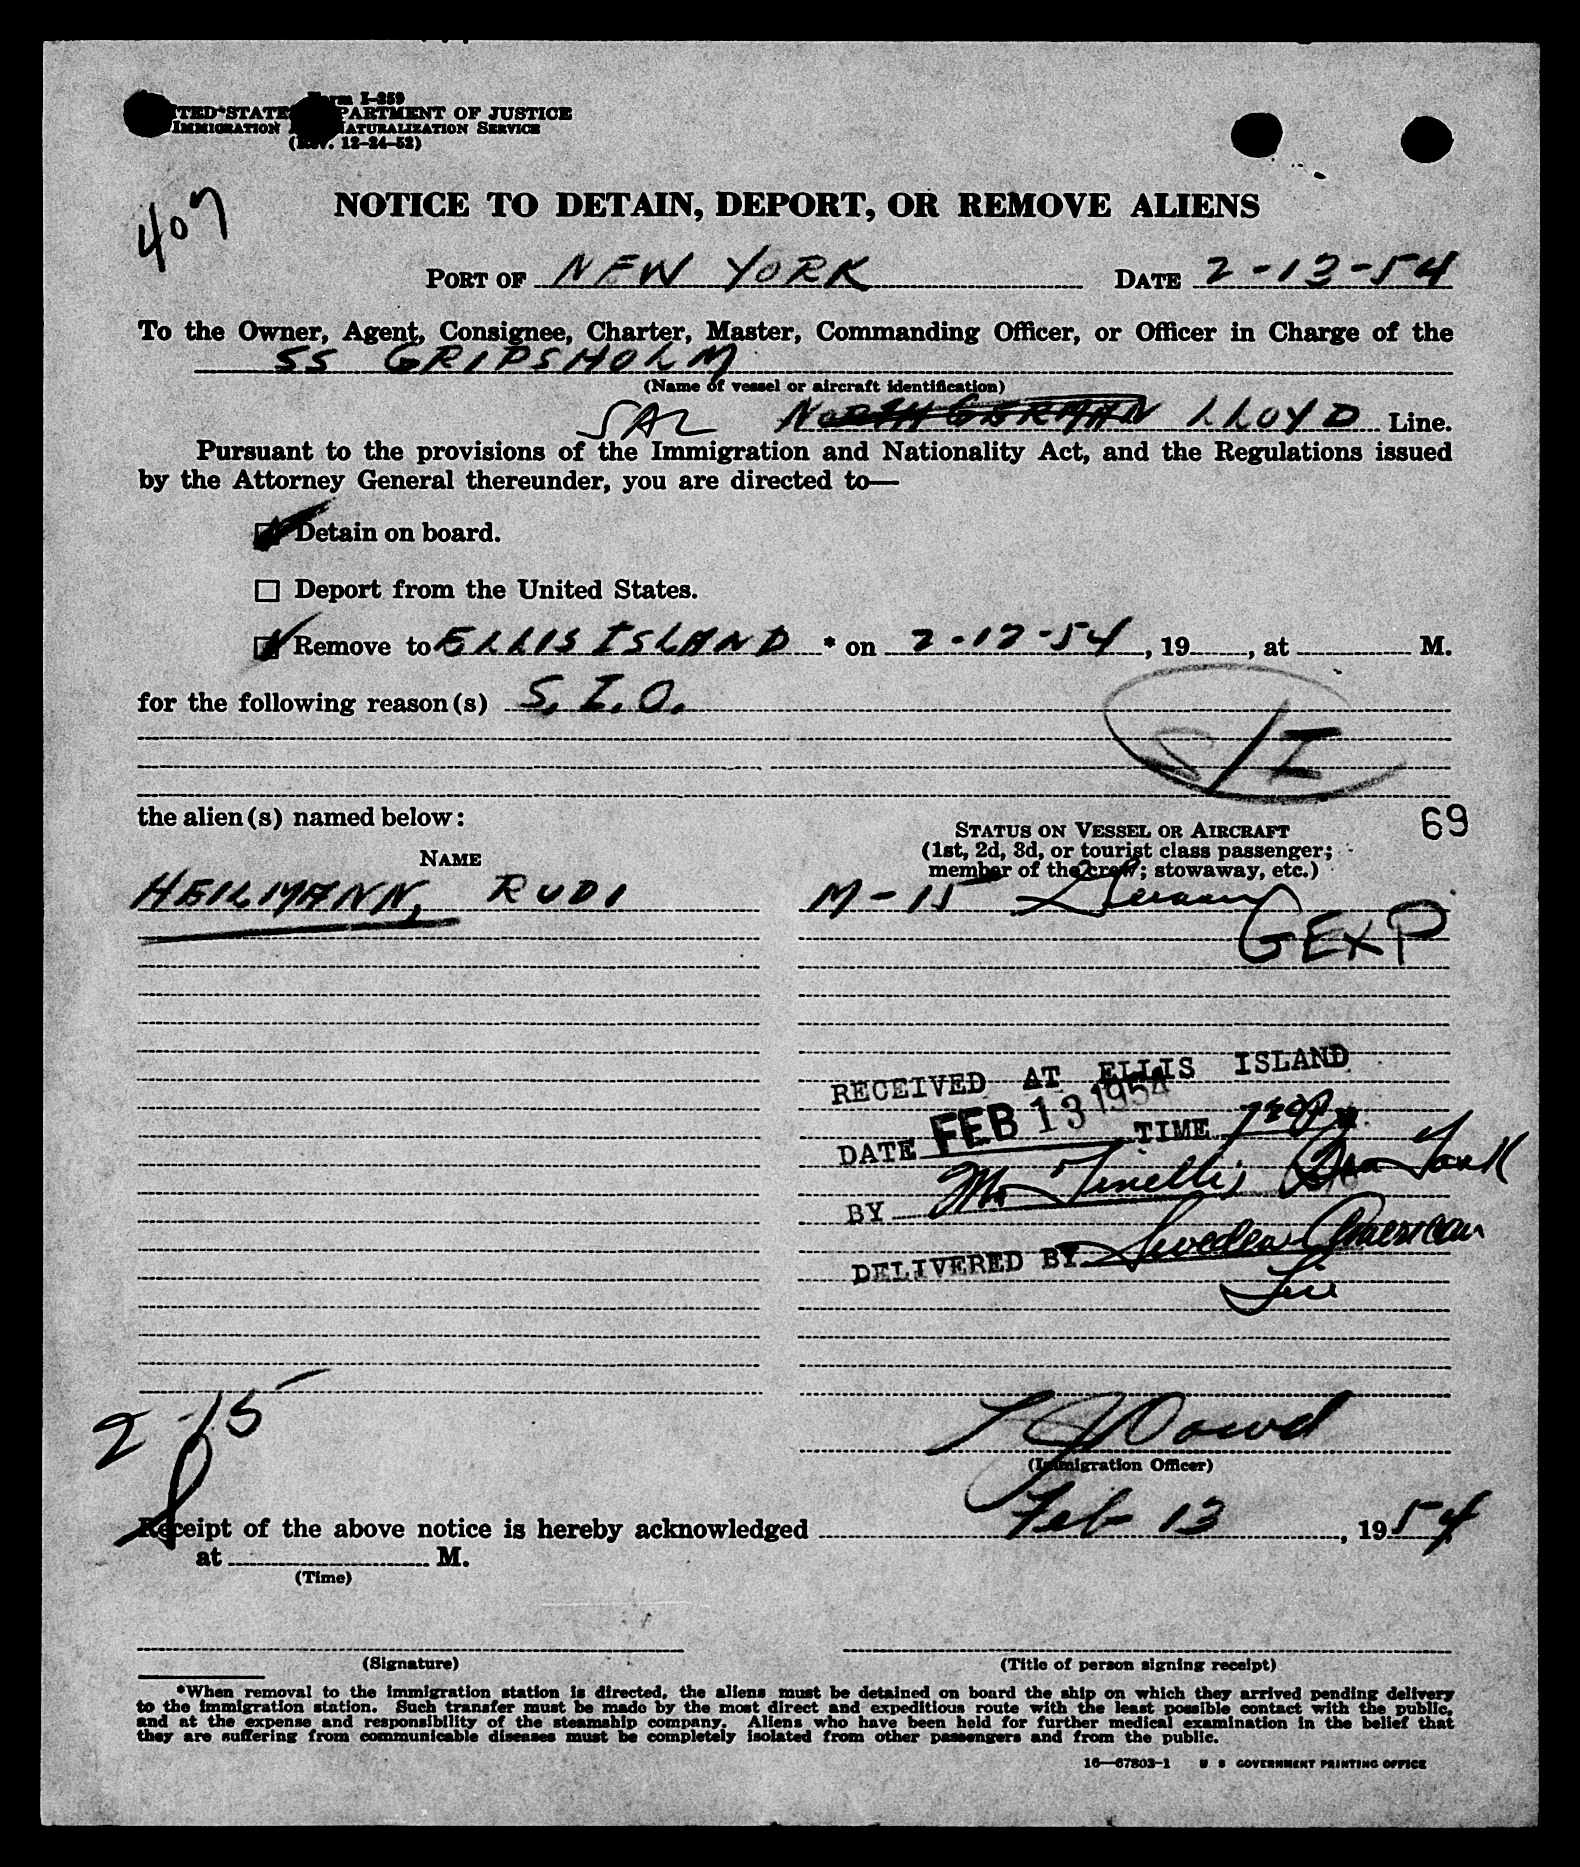 Form I-259
UNITED STATES DEPARTMENT OF JUSTICE
IMMIGRATION NATURALIZATION SERVICE
(Rev. 12-24-52)
407
NOTICE TO DETAIN, DEPORT, OR REMOVE ALIENS
PORT OF NEW YORK DATE 2-13-54
To the Owner, Agent, Consignee, Charter, Master, Commanding Officer, or Officer in Charge of the
SS GRIPSHOLM
(Name of vessel or aircraft identification)
SAL NORTH GERMAN LLOYD Line.
Pursuant to the provisions of the Immigration and Nationality Act, and the Regulations issued
by the Attorney General thereunder, you are directed to—
Detain on board.
Deport from the United States.
Remove to ELLIS ISLAND * on 2-13-54, 19, at M.
for the following reason(s) S. I. O.
S/I
the alien(s) named below:
69
STATUS ON VESSEL OR AIRCRAFT
(1st, 2d, 3d, or tourist class passenger;
member of the crew; stowaway, etc.)
NAME
HEILMANN, RUDI M-15 German
GEXP
RECEIVED AT ELLIS ISLAND
DATE FEB 13 1954 TIME
BY Mr
DELIVERED BY Sweden American
Line
2-15
Dowd
(Immigration Officer)
Receipt of the above notice is hereby acknowledged Feb 13, 1954
at M.
(Time)
(Signature) (Title of person signing receipt)
*When removal to the immigration station is directed, the aliens must be detained on board the ship on which they arrived pending delivery
to the immigration station. Such transfer must be made by the most direct and expeditious route with the least possible contact with the public,
and at the expense and responsibility of the steamship company. Aliens who have been held for further medical examination in the belief that
they are suffering from communicable diseases must be completely isolated from other passengers and from the public.
16—67803-1 U S GOVERNMENT PRINTING OFFICE